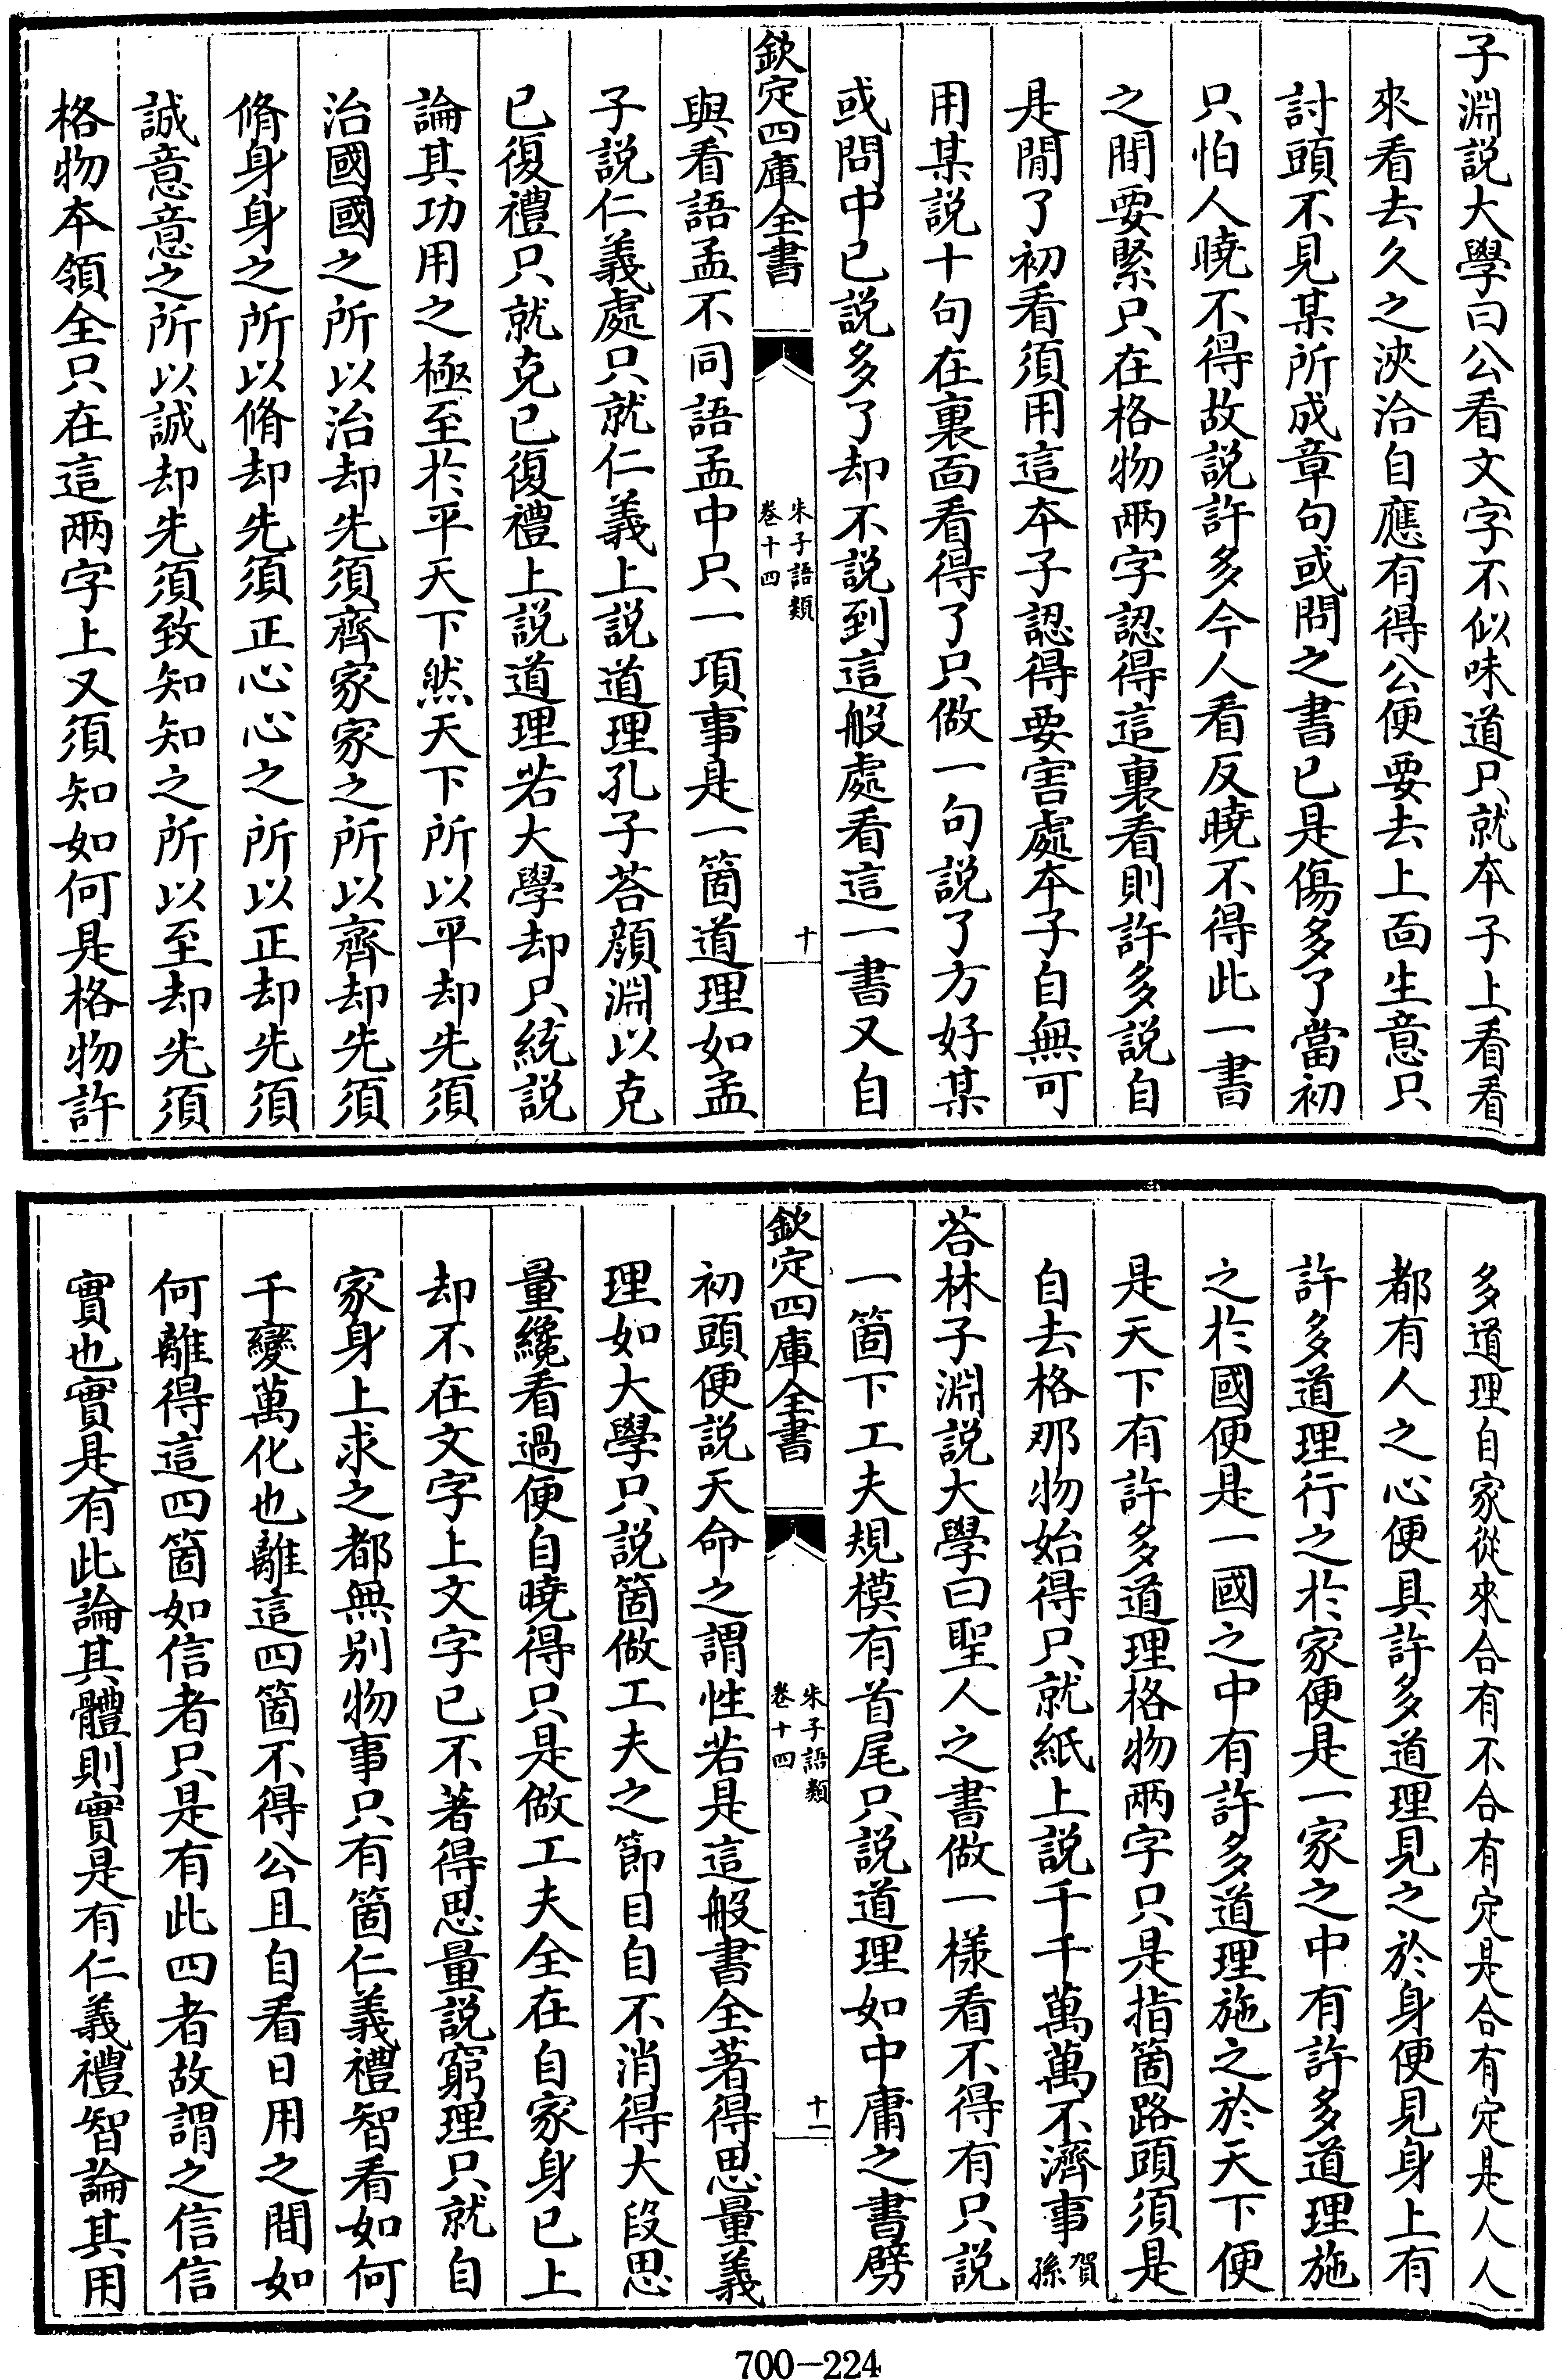 子淵説大學曰公看文字不似味道只就本子上看看
來看去久之浹洽自應有得公便要去上面生意只
討頭不見某所成章句或問之書已是傷多了當初
只怕人曉不得故説許多今人看反曉不得此一書
之間要緊只在格物兩字認得這裏看則許多説自
是閒了初看須用這本子認得要害處本子自無可
用某説十句在裏面看得了只做一句説了方好某
或問中已説多了却不説到這般處看這一書又自
欽定四庫全書
朱子語類
卷十四
十
與看語孟不同語孟中只一項事是一箇道理如孟
子説仁義處只就仁義上説道理孔子荅顔淵以克
已復禮只就克已復禮上説道理若大學却只統説
論其功用之極至於平天下然天下所以平却先須
治國國之所以治却先須齊家家之所以齊却先須
脩身身之所以脩却先須正心心之所以正却先須
誠意意之所以誠却先須致知知之所以至却先須
格物本領全只在這兩字上又須知如何是格物許
多道理自家從來合有不合有定是合有定是人人
都有人之心便具許多道理見之於身便見身上有
許多道理行之於家便是一家之中有許多道理施
之於國便是一國之中有許多道理施之於天下便
是天下有許多道理格物兩字只是指箇路頭須是
自去格那物始得只就紙上説千千萬萬不濟事賀孫
荅林子淵説大學曰聖人之書做一樣看不得有只説
一箇下工夫規模有首尾只説道理如中庸之書劈
欽定四庫全書
朱子語類
卷十四
十一
初頭便説天命之謂性若是這般書全著得思量義
理如大學只説箇做工夫之節目自不消得大段思
量纔看過便自曉得只是做工夫全在自家身已上
却不在文字上文字已不著得思量説窮理只就自
家身上求之都無别物事只有箇仁義禮智看如何
千變萬化也離這四箇不得公且自看日用之間如
何離得這四箇如信者只是有此四者故謂之信信
實也實是有此論其體則實是有仁義禮智論其用
700-224